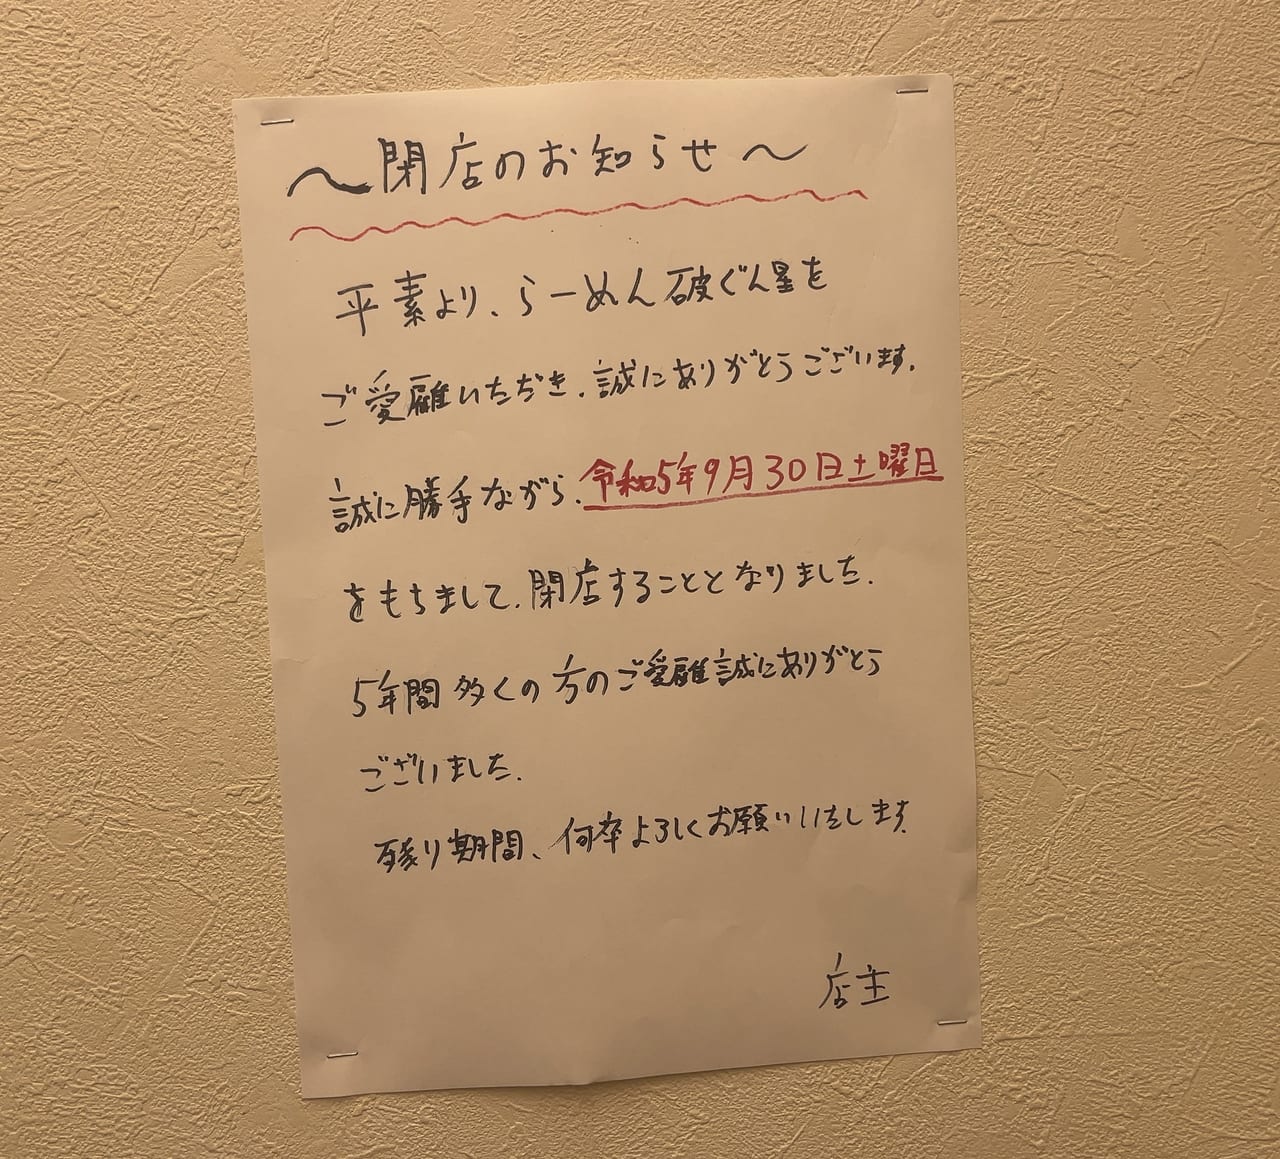 ～閉店のお知らせ～
平素より、らーめん破ぐん星を
ご愛雇いただき、誠にありがとうございます。
誠に勝手ながら、令和5年9月30日土曜日
をもちまして、閉店することとなりました。
5年間多くの方のご愛雇誠にありがとう
ございました。
残り期間、何卒よろしくお願いいたします
店主